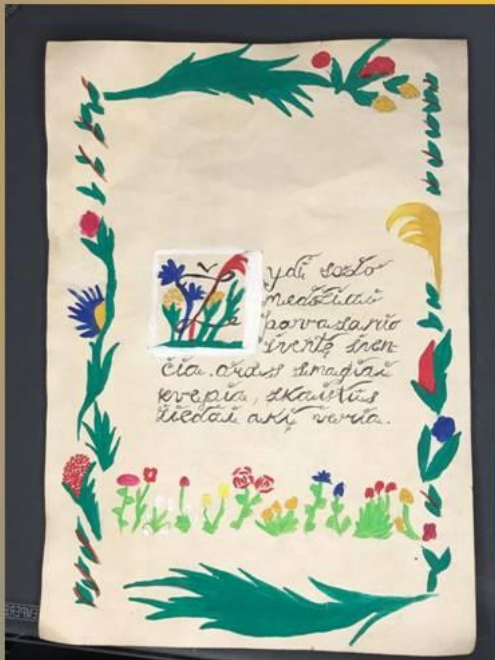 Žydi sodo
medeliai
pavasario
šventę šven-
čia.
kvepia, skaistūs
žiedai akį veria.